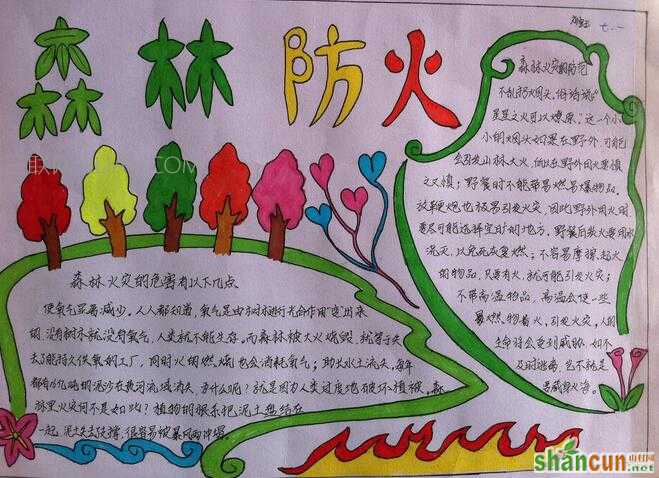 森林防火
七.一
森林火灾的防范
不乱扔烟头，俗话说
星星之火可以燎原；这一个小
小的烟火如果在野外，可能
会引发山林大火，所以在野外用火要慎
之又慎；野餐时不能带易燃易爆物品。
放鞭炮也极易引发火灾，因此野外用火时
要尽可能选择空旷的地方，野餐后装火要用水
浇灭，以免死灰复燃；不容易摩擦起火
的物品，只要有火，就可能引发火灾；
不带高温物品，高温会使一些
易燃物着火，引发火灾，人的
生命将会受到威胁，如不
及时逃离，
森林火灾的危害有以下几点
使氧气显著减少，人人都知道，氧气是由树木进行光合作用"造"出来
的，没有树木就没有氧气，人类就不能生存，而森林被大火烧毁，就等于失
去了能持久供氧的工厂，同时火的燃烧也会消耗氧气；助长水土流失，每年
都有16亿吨的泥沙在黄河流域消失，为什么呢？就是因为人类过度地破坏植被，森
林里火灾何不是如此？植物的根系把泥土盘结在
一起，泥土失去支撑，很容易被暴风雨冲塌。
shancun.net
山村网